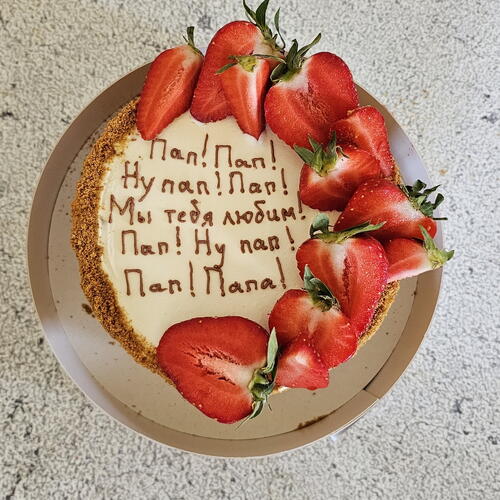 Пап! Пап!
Ну пап! Пап!
Мы тебя любим!
Пап! Ну пап!
Пап! Папа!